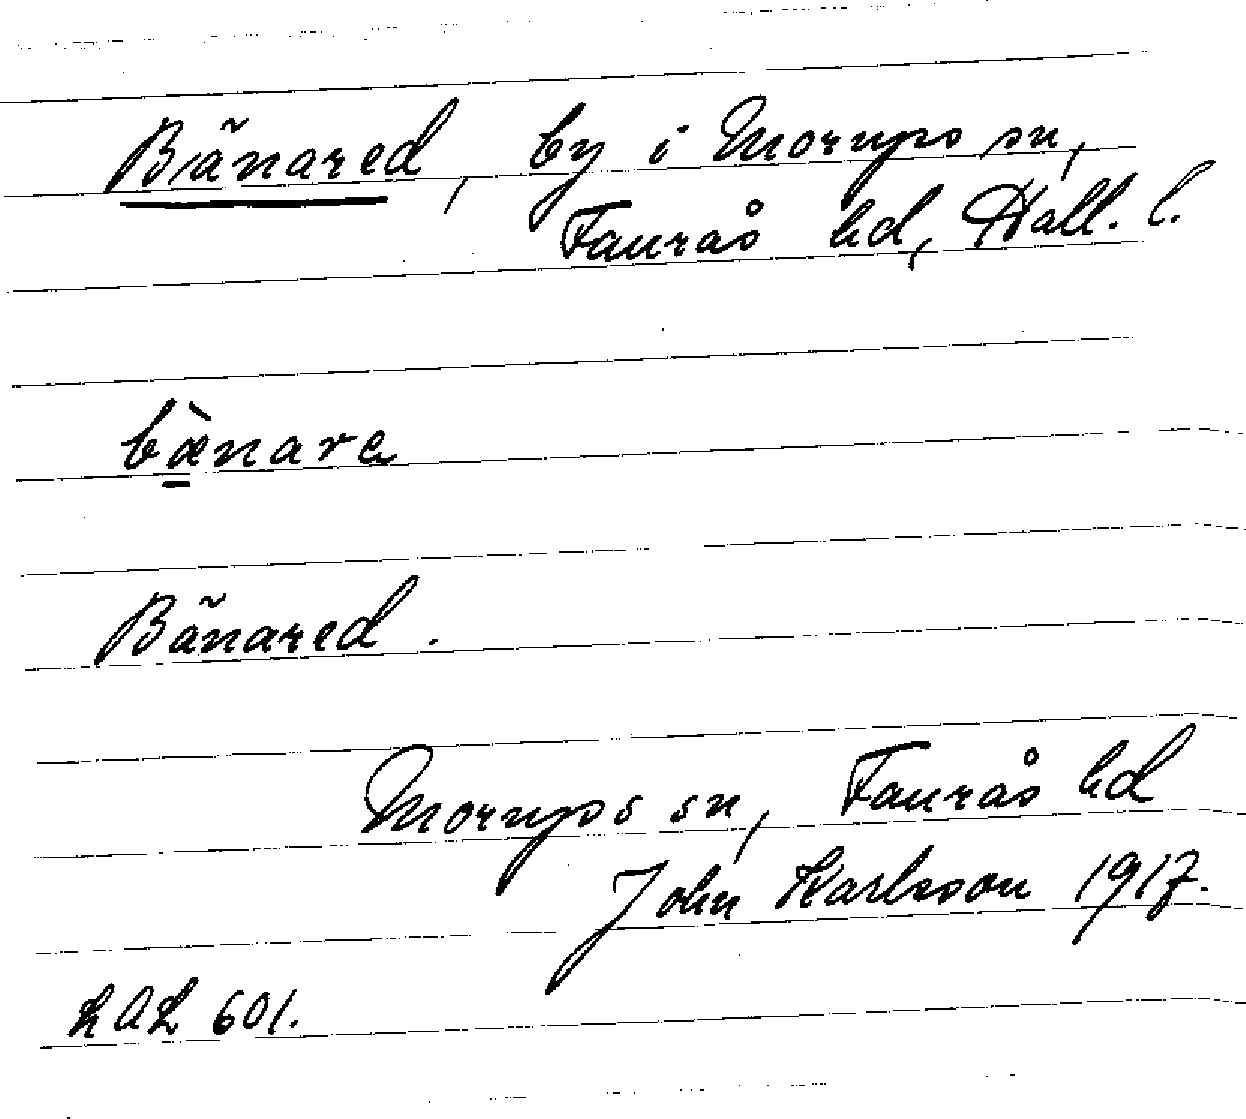 Bänared, by i Morups sn,
Faurås hd, Hall. l.
bæ̀narə
Bänared.
Morups sn, Faurås hd
John Karlsson 1917.
LAL 601.